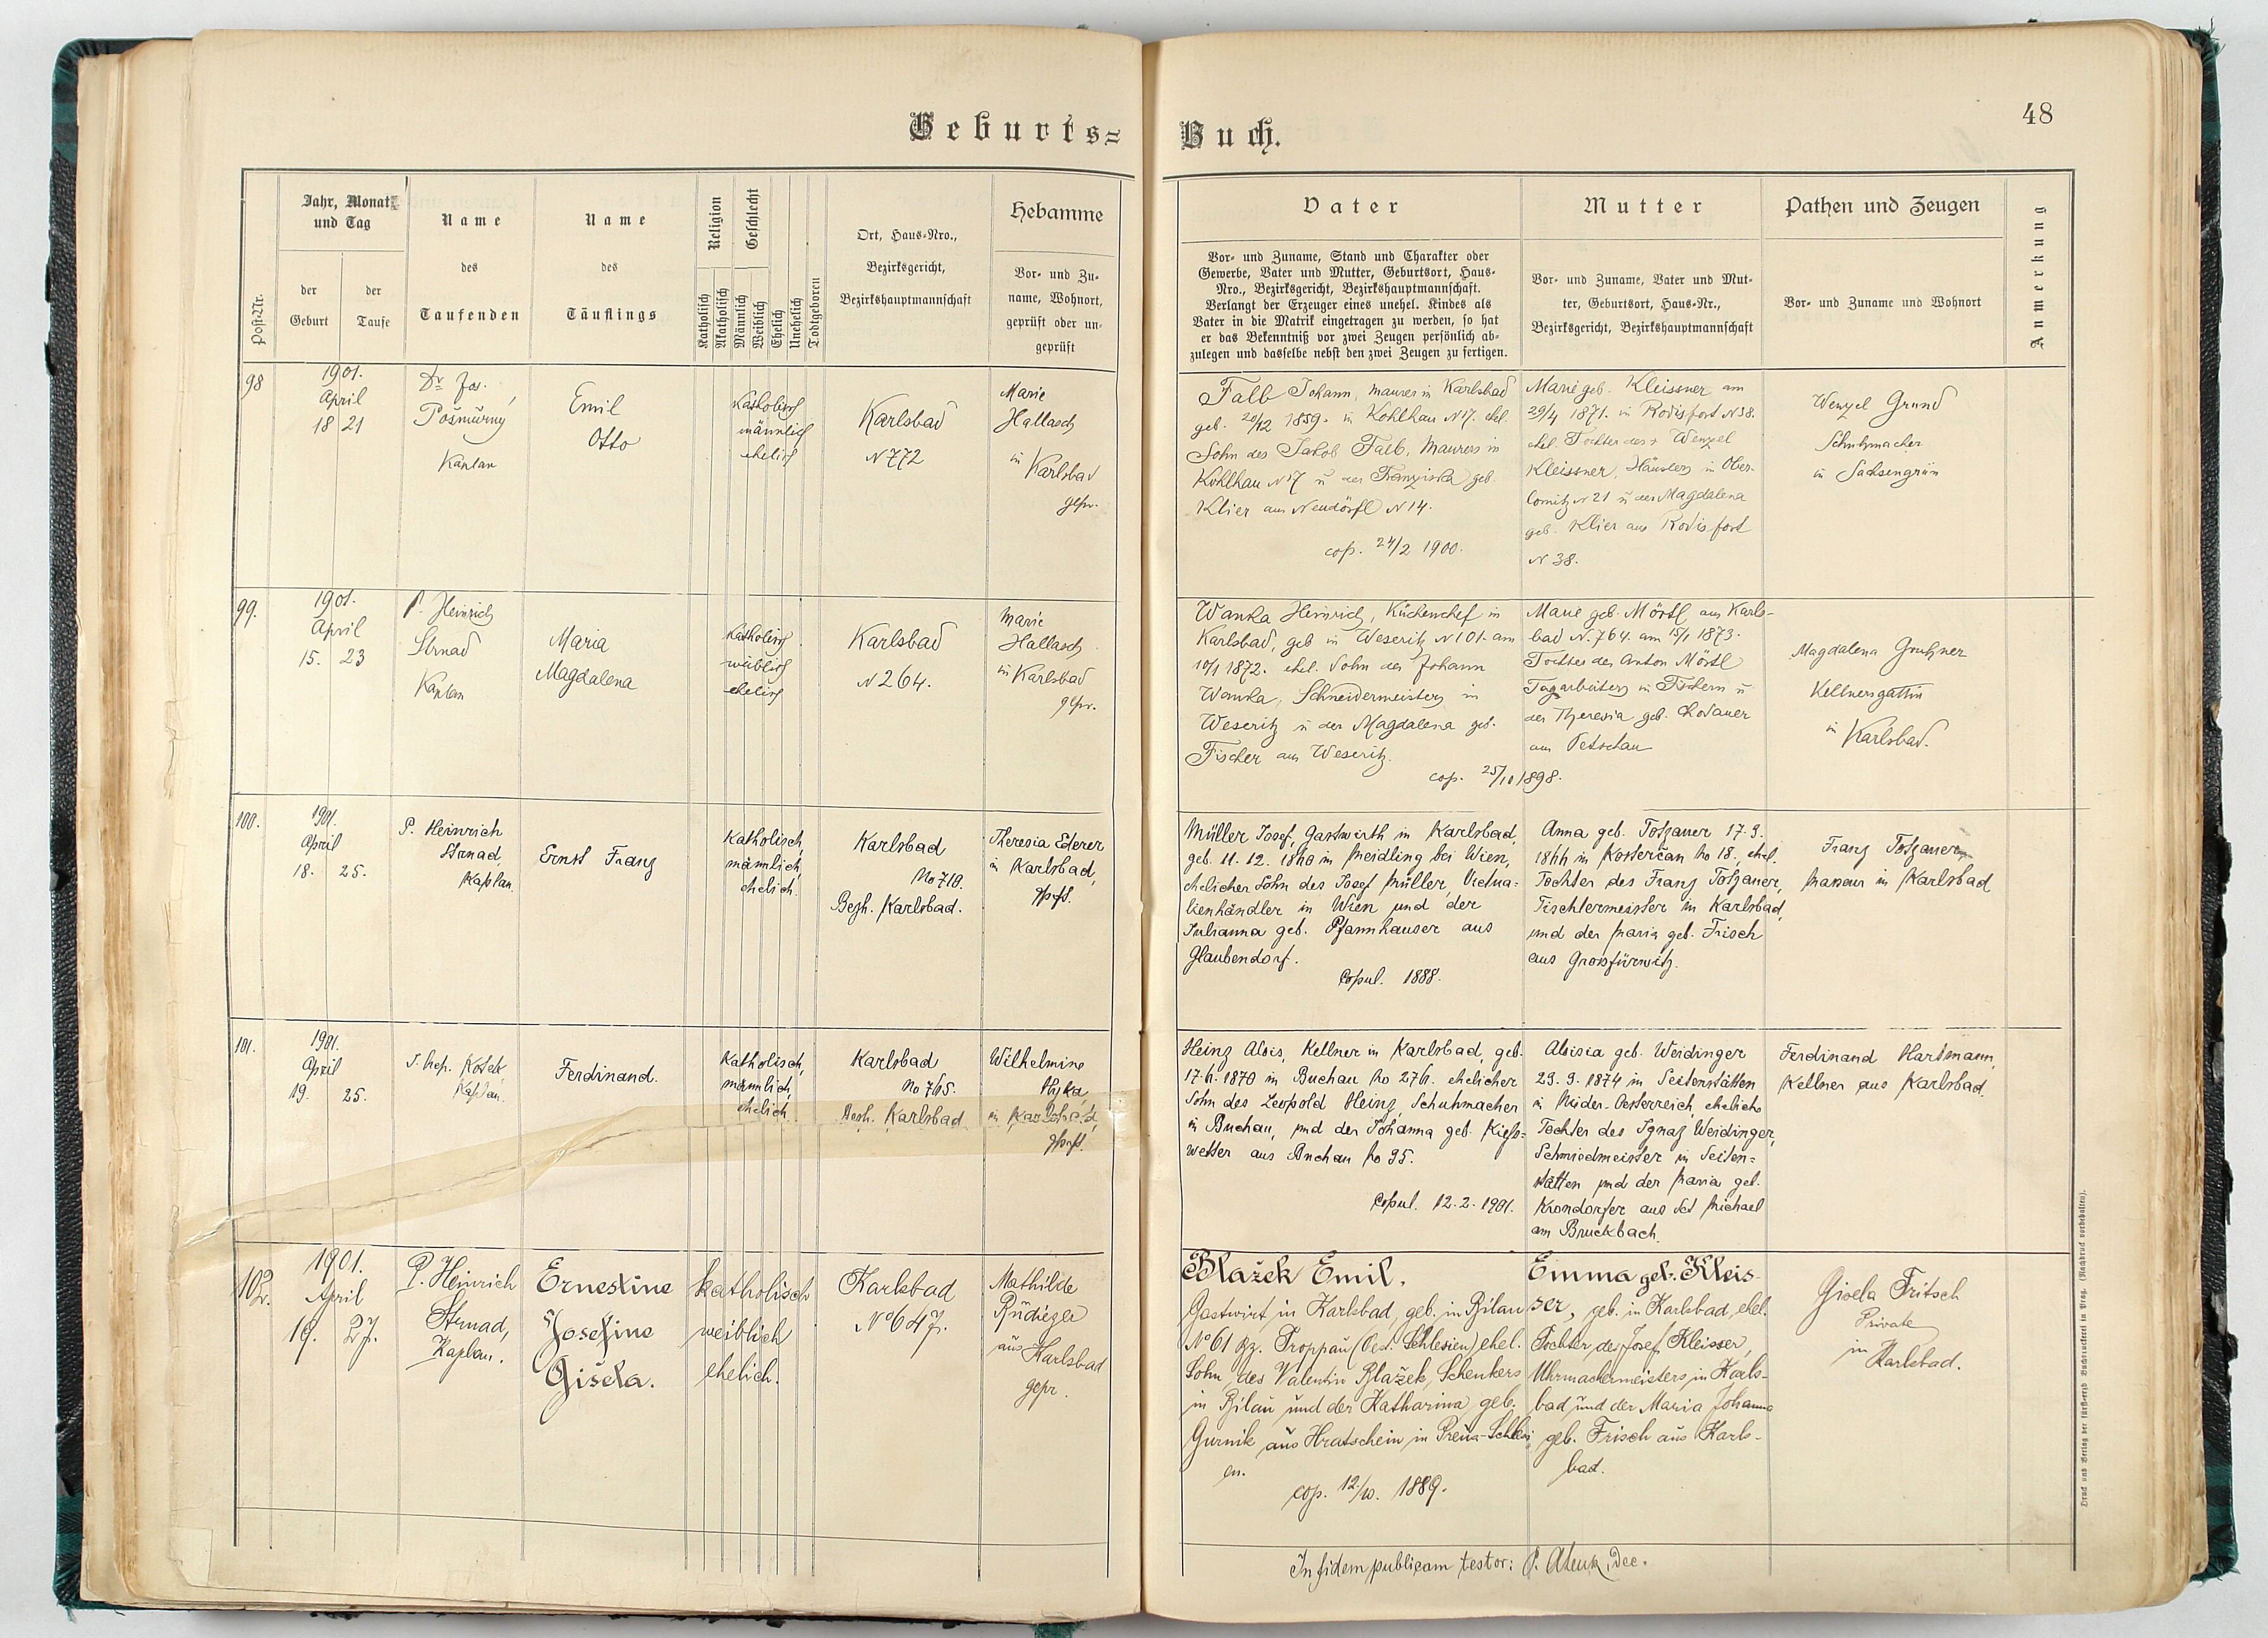 Geburts=
Buch.
48
Post-Nr.
Jahr, Monat
und Tag
der
Geburt
der
Taufe
Name
des
Taufenden
Name
des
Täuflings
Religion
Katholisch
Akatholisch
Geschlecht
Männlich
Weiblich
Ehelich
Unehelich
Todtgeboren
Ort, Haus-Nro.,
Bezirksgericht,
Bezirkshauptmannschaft
Hebamme
Vor- und Zu-
name, Wohnort,
geprüft oder un-
geprüft
Vater
Vor- und Zuname, Stand und Charakter oder
Gewerbe, Vater und Mutter, Geburtsort, Haus-
Nro., Bezirksgericht, Bezirkshauptmannschaft.
Verlangt der Erzeuger eines unehel. Kindes als
Vater in die Matrik eingetragen zu werden, so hat
er das Bekenntniß vor zwei Zeugen persönlich ab-
zulegen und dasselbe nebst den zwei Zeugen zu fertigen.
Mutter
Vor- und Zuname, Vater und Mut-
ter, Geburtsort, Haus-Nr.,
Bezirksgericht, Bezirkshauptmannschaft
Pathen und Zeugen
Vor- und Zuname und Wohnort
Anmerkung
98
1901.
April
18 21
Dr. Jos.
Pošmúrný
Kaplan
Emil
Otto
katholisch
männlich
ehelich
Karlsbad
N 772
Marie
Hallasch
in Karlsbad
gepr.
Falb Johann, Maurer in Karlsbad
geb. 20/12 1859. in Kohlhau N 17. ehel.
Sohn des Jakob Falb, Maurers in
Kohlhau N 17 u der Franziska geb.
Klier aus Neudörfl N 14.
cop. 24/2 1900.
Marie geb. Kleissner am
29/4 1871. in Rodisfort N 38.
ehel. Tochter des + Wenzel
Kleissner, Häuslers in Ober-
lomitz N 21 u der Magdalena
geb. Klier aus Rodisfort
N 38.
Wenzel Grund
Schuhmacher
in Sachsengrün
99.
1901.
April
15. 23
P. Heinrich
Strnad
Kaplan
Maria
Magdalena
katholisch
weiblich
ehelich
Karlsbad
N 264.
Marie
Hallasch
in Karlsbad
gepr.
Wanka Heinrich, Küchenchef in
Karlsbad, geb in Weseritz N 101. am
10/1 1872. ehel. Sohn des Johann
Wanka, Schneidermeisters in
Weseritz u der Magdalena geb.
Fischer aus Weseritz.
cop. 25/10 1898.
Marie geb. Mörtl aus Karls-
bad N. 764. am 15/1 1873.
Tochter des Anton Mörtl
Tagarbeiters in Fischern u
der Theresia geb. Lodauer
aus Petschau
Magdalena
Kellnersgattin
in Karlsbad.
100.
1901.
April
18. 25.
P. Heinrich
Strnad,
Kaplan.
Ernst Franz
Katholisch,
männlich,
ehelich.
Karlsbad
No 710.
Bezh. Karlsbad.
Theresia Ederer
in Karlsbad,
gepft.
Müller Josef, Gastwirth in Karlsbad,
geb. 11. 12. 1840 in Meidling bei Wien,
ehelicher Sohn des Josef Müller, Victua=
lienhändler in Wien und der
Julianna geb. Pfannhauser aus
Glaubendorf.
Copul. 1888.
Anna geb. Totzauer 17. 9.
1844 in Kosterčan No 18., ehel.
Tochter des Franz Totzauer,
Tischlermeister in Karlsbad,
und der Maria geb. Frisch
aus Grossfürwitz.
Franz Totzauer
Masseur in Karlsbad
101.
1901.
April
19. 25.
J. Nep. Košek
Kaplan.
Ferdinand.
Katholisch,
männlich,
ehelich.
Karlsbad
No 765.
Bezh. Karlsbad
Wilhelmine
Hyka,
in Karlsbad,
gepft.
Heinz Alois, Kellner in Karlsbad, geb.
17. 6. 1870 in Buchau No 276. ehelicher
Sohn des Leopold Heinz, Schuhmacher
in Buchau, und der Johanna geb. Kiess=
wetter aus Buchau No 95.
Copul. 12. 2. 1901.
Aloisia geb. Weidinger
29. 9. 1874 in Seitenstätten
in Nieder-Oesterreich, eheliche
Tochter des Ignaz Weidinger,
Schmiedmeister in Seiten=
stätten und der Maria geb.
Krondorfer aus Sct Michael
am Bruckbach.
Ferdinand Hartmann,
Kellner aus Karlsbad.
102.
1901.
April
19. 27.
P. Heinrich
Strnad,
Kaplan.
Ernestine
Josefine
Gisela.
katholisch
weiblich
ehelich.
Karlsbad
No 647.
Mathilde
Rüdiger
aus Karlsbad
gepr.
Blažek Emil,
Gastwirt in Karlsbad, geb. in Bilau
No 61 Bz. Troppau (Oest. Schlesien) ehel.
Sohn des Valentin Blažek, Schenkers
in Bilau und der Katharina geb.
Gurnik aus Hratschein in Preus-Schlesi
en.
cop. 12./10. 1889.
Emma geb. Kleis-
ser, geb. in Karlsbad, ehel.
Tochter des Josef Kleisser,
Uhrmachermeisters in Karls-
bad und der Maria Johanna
geb. Frisch aus Karls-
bad.
Gisela Fritsch
Private
in Karlsbad.
In fidem publicam testor: P. Dec.
Druck und Verlag der fürst-erzb. Buchdruckerei in Prag. (Nachdruck vorbehalten).